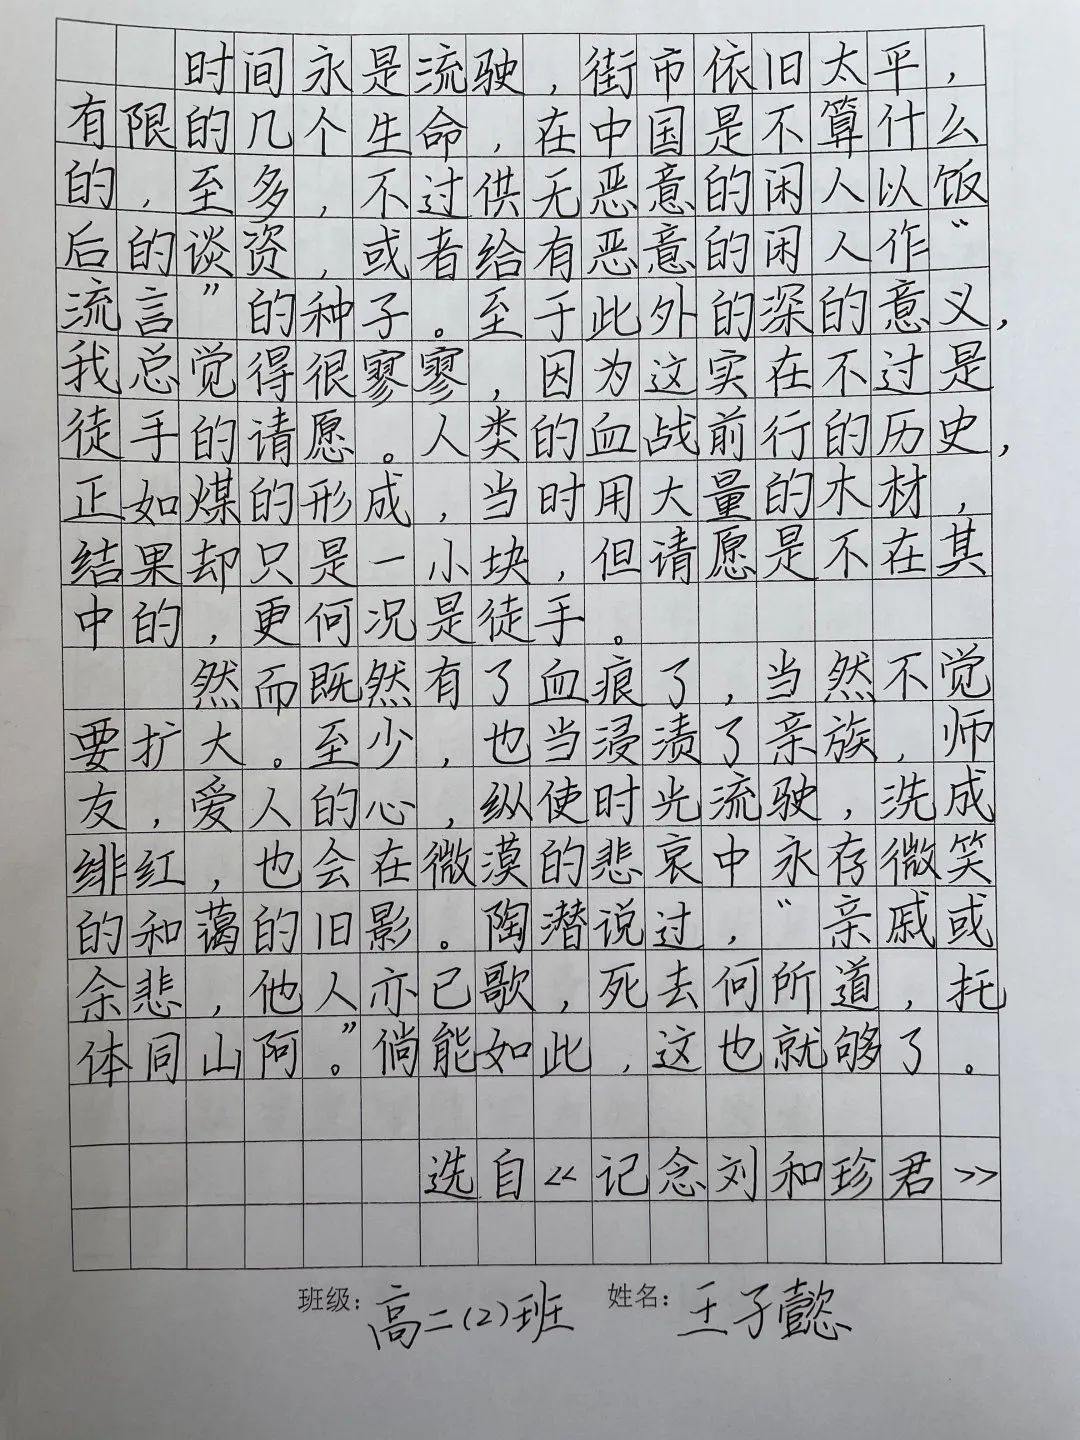 时间永是流驶，街市依旧太平，
有限的几个生命，在中国是不算什么
的，至多，不过供无恶意的闲人以饭
后的谈资，或者给有恶意的闲人作“
流言”的种子。至于此外的深的意义，
我总觉得很寥寥，因为这实在不过是
徒手的请愿。人类的血战前行的历史，
正如煤的形成，当时用大量的木材，
结果却只是一小块，但请愿是不在其
中的，更何况是徒手。
然而既然有了血痕了，当然不觉
要扩大。至少，也当浸渍了亲族，师
友，爱人的心，纵使时光流驶，洗成
绯红，也会在微漠的悲哀中永存微笑
的和蔼的旧影。陶潜说过，“亲戚或
余悲，他人亦已歌，死去何所道，托
体同山阿。”倘能如此，这也就够了。
选自《记念刘和珍君》
班级：高二（2）班 姓名：王子懿